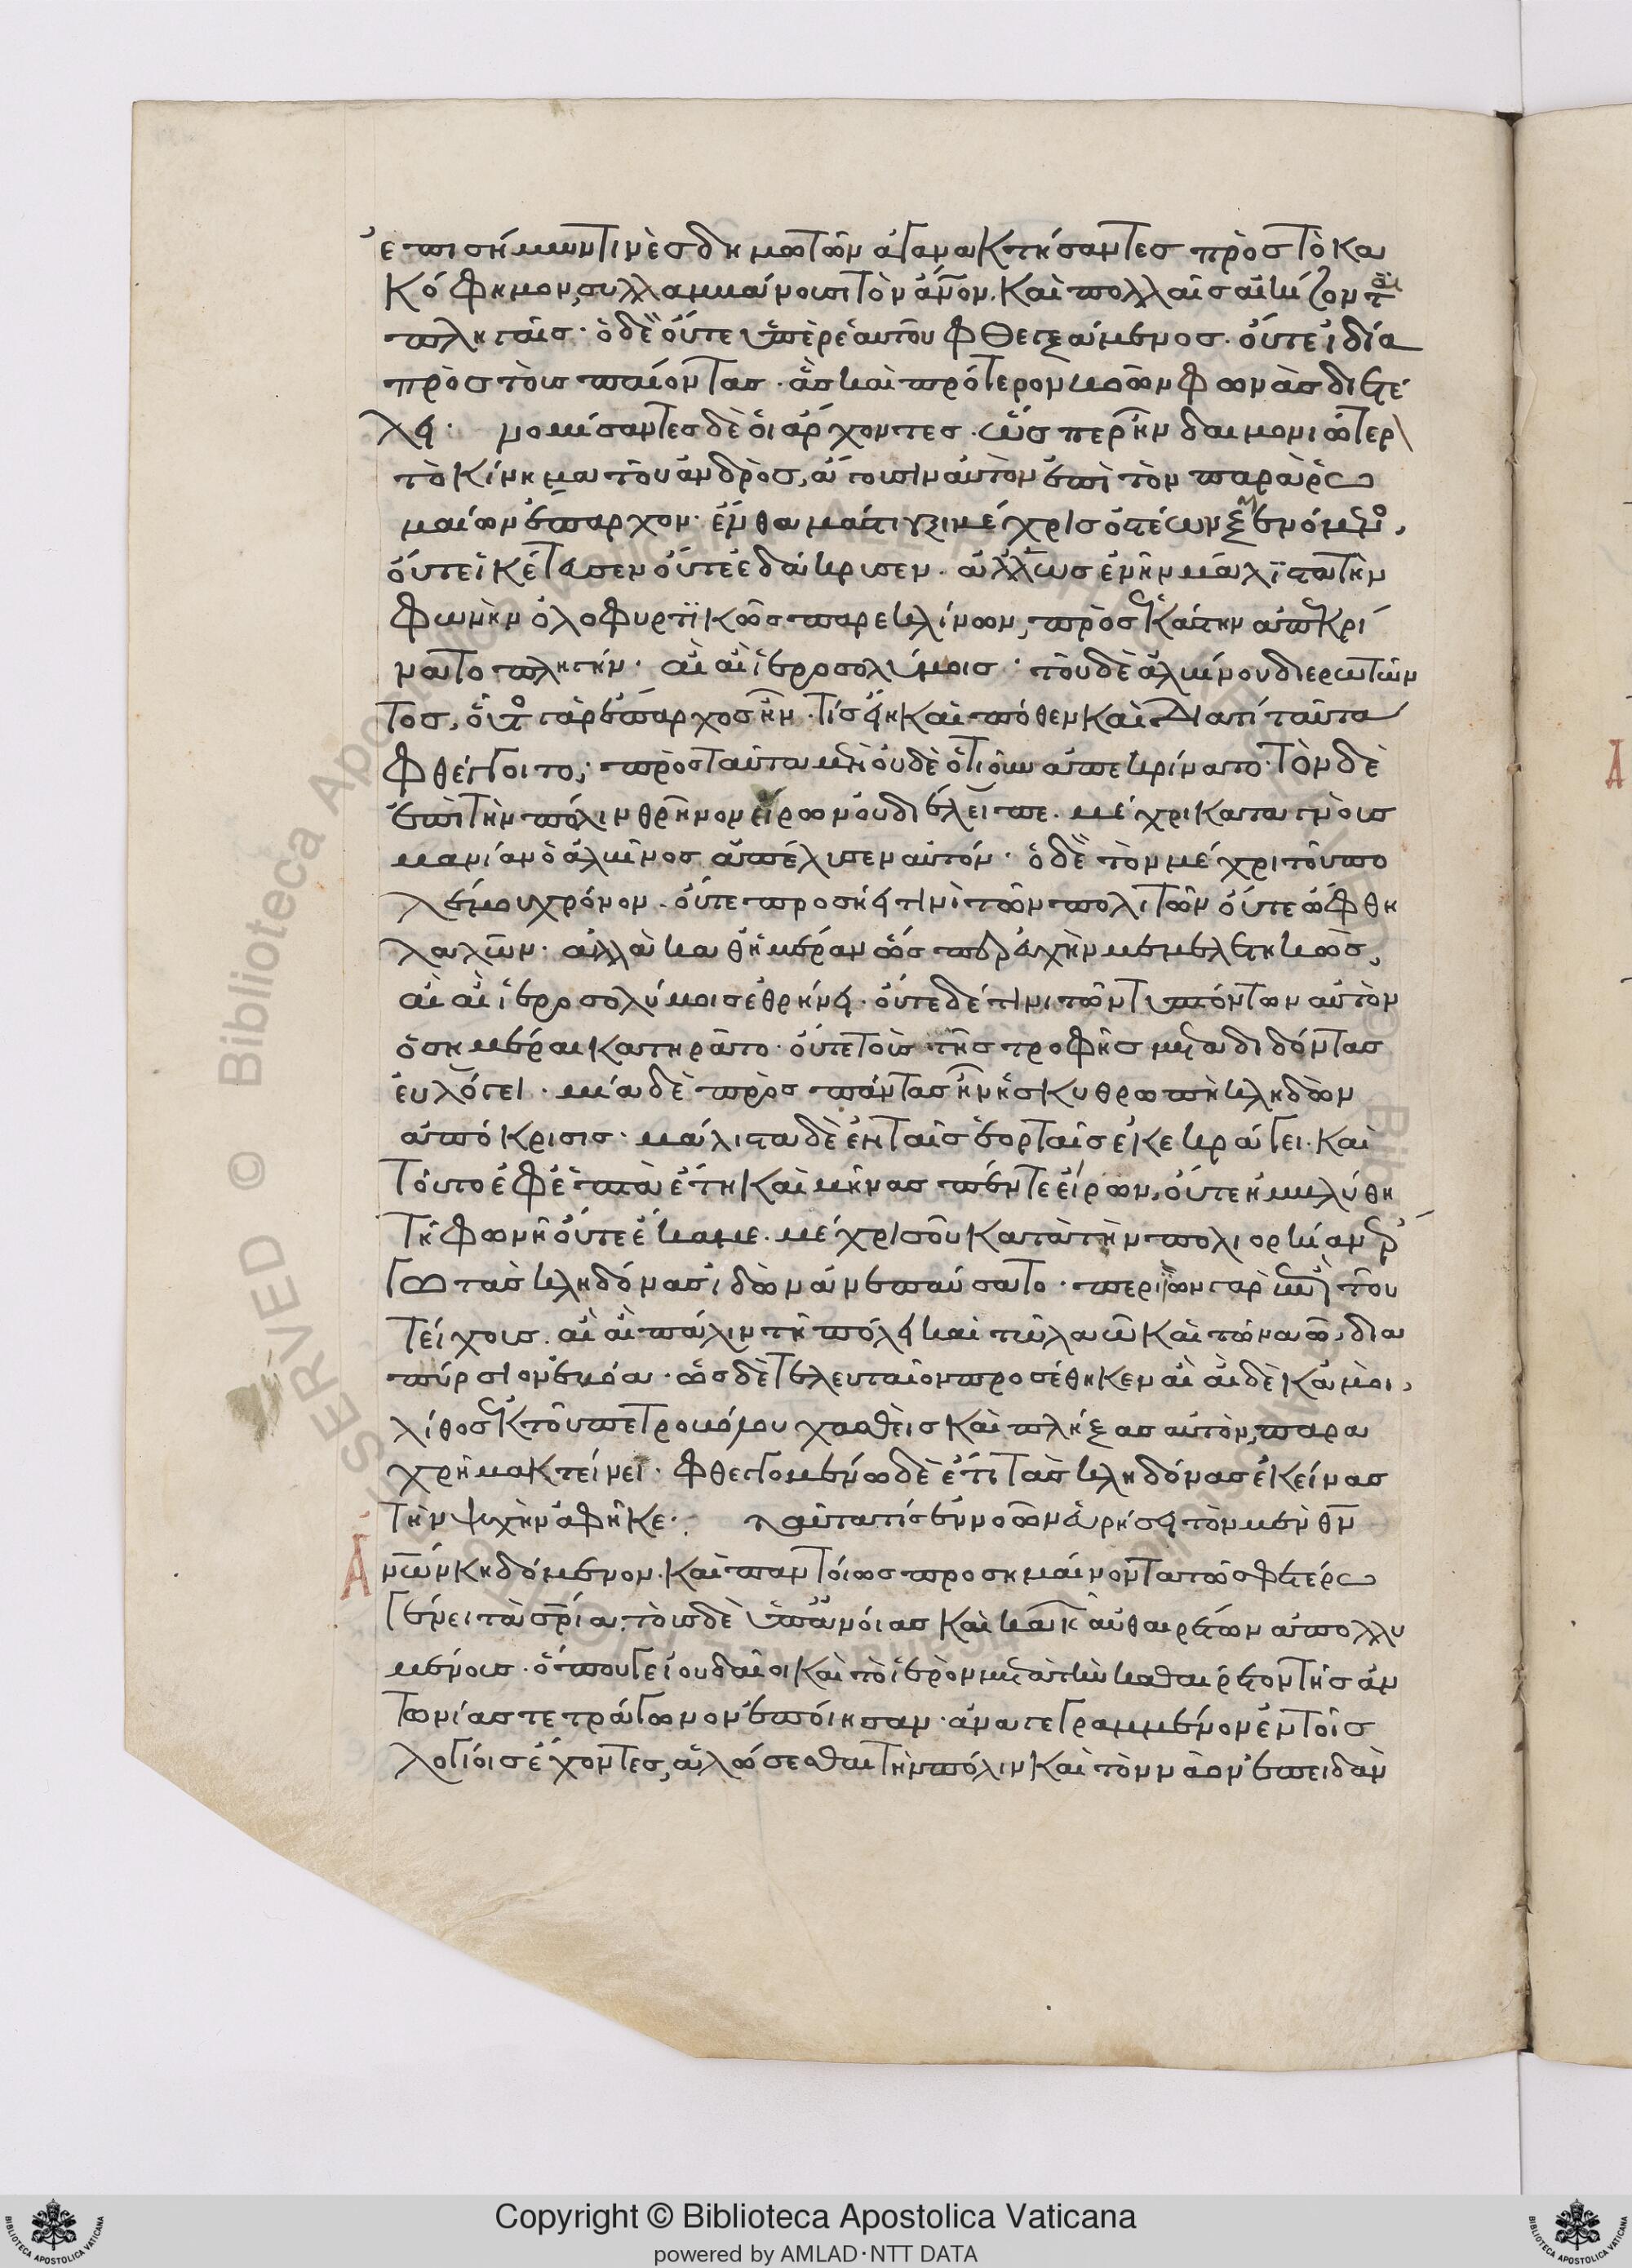 ἐπισήμων τινὲς δημοτῶν ἀγανακτήσαντες πρὸς τὸ κα
κόφημον, συλλαμβάνουσι τὸν ἄνον. καὶ πολλαῖς αἰκίζονται
πληγαῖς· ὁ δὲ οὔτε ὑπὲρ ἑαυτοῦ φθεγξάμενος. οὔτε ἰδία
πρὸς τοὺς παίοντας. ἃς καὶ πρότερον βοῶν φωνὰς διετέ
λει· νομίσαντες δὲ οἱ ἄρχοντες. ὥσπερ ἦν δαιμονιώτερ
τὸ κίνημα τοῦ ἀνδρὸς, ἄγουσιν αὐτὸν ἐπὶ τὸν παρὰ ῥω
μαίων ἔπαρχον· ἔνθα μάστιξι μέχρις ὀστέων ξενόμεν,
οὔτε ἱκέτευσεν οὔτε ἐδάκρυσεν. ἀλλ ὡς ἐνῆν μάλιστα τὴν
φωνὴν ὀλοφυρτικῶς παρεκλίνων, πρὸς ἑκάστην ἀπεκρί
νατο πληγήν· αἲ αἲ ἱεροσολύμοις· τοῦ δὲ ἀλβίνου διερωτῶν
τος, οὗτος γὰρ ἔπαρχος ἦν. τίς εἴη καὶ πόθεν καὶ διατί ταῦτα
φθέγγοιτο; πρὸς ταῦτα μὲν οὐδὲ ὁτιοῦν ἀπεκρίνατο. τὸν δὲ
ἐπὶ τὴν πόλιν θρῆνον εἴρων οὐ διέλειπε. μέχρι καταγνοὺς
μανίαν ὁ ἀλβῖνος ἀπέλυσεν αὐτόν· ὁ δὲ τὸν μέχρι τοῦ πο
λέμου χρόνον. οὔτε προσήει τινὶ τῶν πολιτῶν οὔτε ὤφθη
λαλῶν· ἀλλὰ καθημέραν ὥσπερ εὐχὴν μεμελετηκὼς,
αἲ αἲ ἱεροσολύμοις ἐθρήνει. οὔτε δέ τινι τῶν τυπτόντων αὐτὸν
ὁσημέραι κατηρᾶτο· οὔτε τοὺς τῆς τροφῆς μεταδιδόντας
εὐλόγει. μία δὲ πρὸς πάντας ἦν ἡ σκυθρωπὴ κληδὼν
ἀπόκρισις· μάλιστα δὲ ἐν ταῖς ἑορταῖς ἐκεκράγει. καὶ
τοῦτο ἐφ ἑπτὰ ἔτη καὶ μῆνας πέντε εἴρων, οὔτε ἠμβλύνθη
τὴ φωνὴ οὔτε ἔκαμε. μέχρις οὗ κατὰ τὴν πολιορκίαν ἔρ
γω τὰς κληδόνας ἰδὼν ἀνεπαύσατο· περιιὼν γὰρ ἐπὶ τοῦ
τείχους. αἲ αἲ πάλιν τῆ πόλει καὶ τῶ λαῶ καὶ τῶ ναῶ, δια
πρύσιον ἐβόα· ὡς δὲ τελευταῖον προσέθηκεν αἲ αἲ δὲ κἀμοὶ,
λίθος ἐκ τοῦ πετροβόλου χασθεὶς καὶ πλήξας αὐτὸν, παρα
χρῆμα κτείνει· φθεγγομένω δὲ ἔτι τὰς κληδόνας ἐκείνας
τὴν ψυχὴν ἀφῆκε· ταῦτά τις ἐννοῶν εὑρήσει τὸν μὲν θν
ἀνων κηδόμενον. καὶ παντοίως προσημαίνοντα τῶ σφετέρω
γένει τὰ σρια, τοὺς δὲ ὑπ ἀνοίας καὶ κακῶν αὐθαιρέτων ἀπολλυ
μένους. ὅπου γε ἰουδαῖοι καὶ τὸ ἱερὸν μετὰ τὴν καθαίρεσιν τῆς ἀν
τωνίας τετράγωνον ἐποίησαν. ἀναγεγραμμένον ἐν τοῖς
λογίοις ἔχοντες, ἁλώσεσθαι τὴν πόλιν καὶ τὸν ναὸν ἐπειδὰν
Copyright © Biblioteca Apostolica Vaticana
powered by AMLAD·NTT DATA